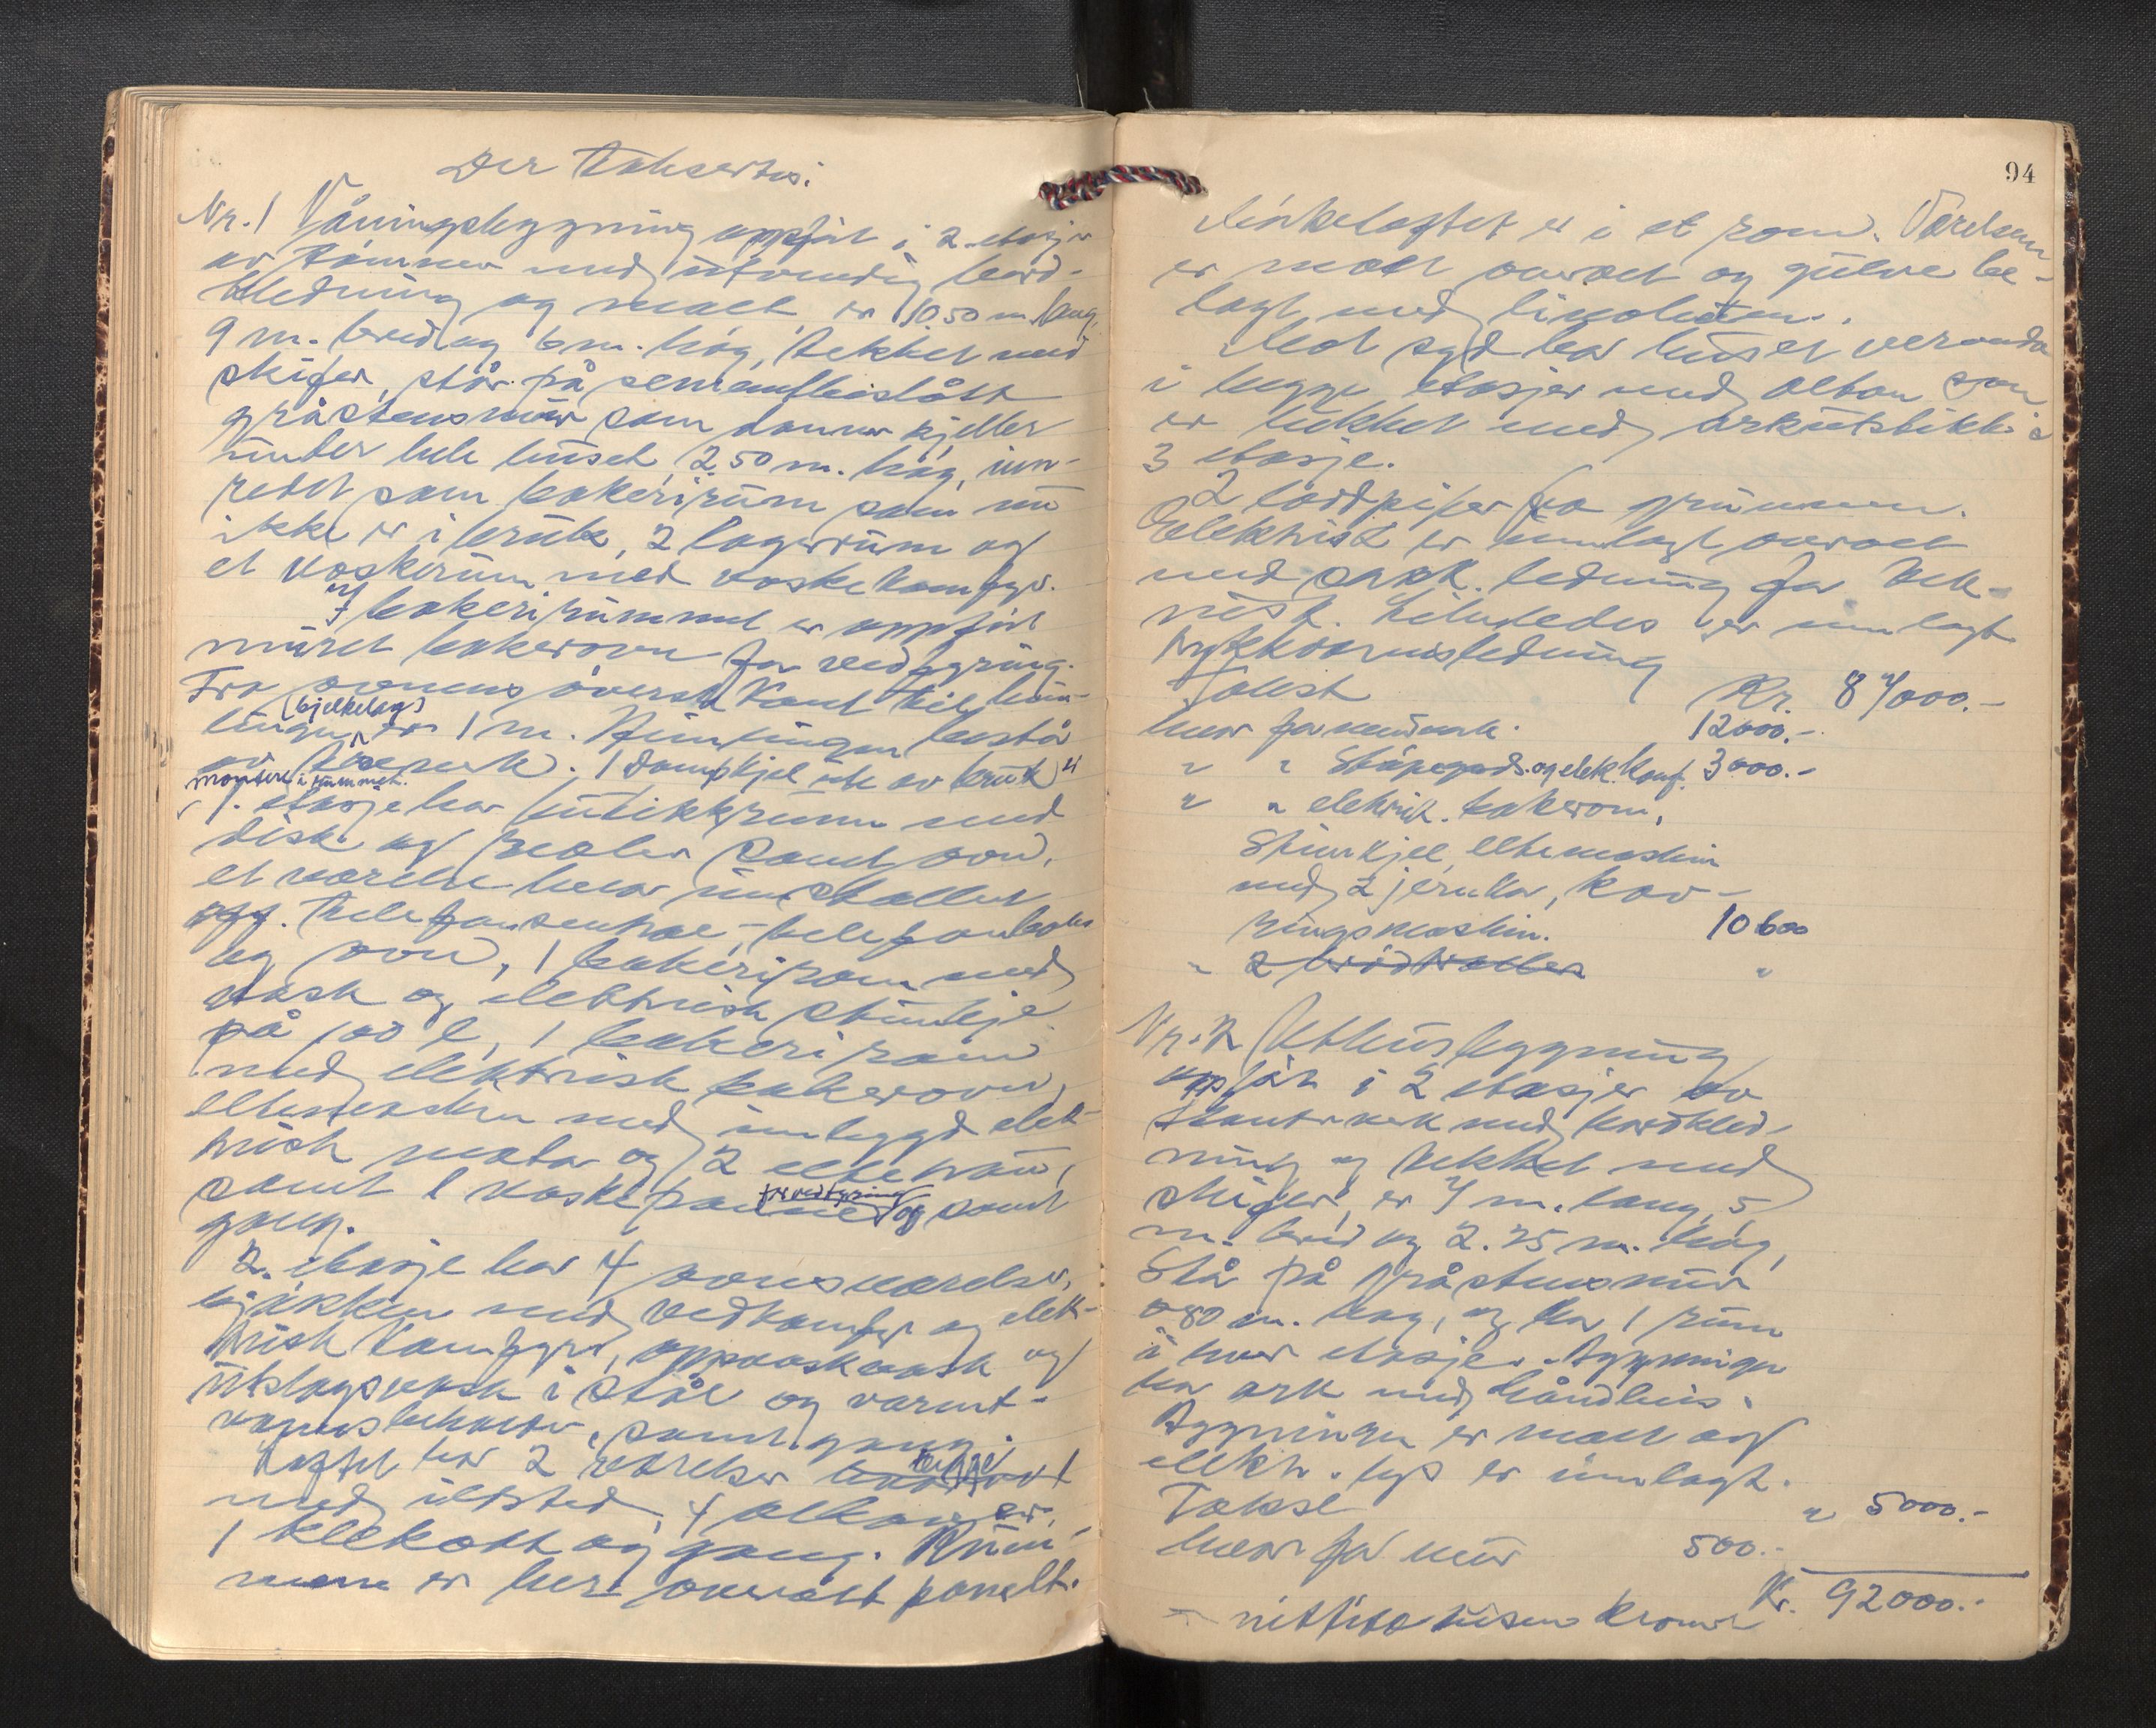 Der takseres:
Nr. 1 Våningsbygning oppført i 2 etasjer
av tømmer med utvendig bord-
kledning og malt er 10.50 m lang,
9 m. bred og 6 m. høg, tekket med
skifer, står på sementbeslått
gråstensmur som danner kjeller
under hele huset, 2.50 m. høg, inn-
redet som bakerirum som nu
ikke er i bruk, 2 lagerrum og
et vaskerum med vaskekomfyr.
I bakerirummet er oppført
muret bakerovn for vedfyring.
Fra ovnens øverste kant til him-
(bjelkelag)
lingen er 1 m. Himlingen består
av treverk. 1 dampkjel ute av bruk er
montert i rummet.
1. etasje har butikkrum med
disk og reoler samt ovn,
et værelse hvor installert
off. telefonsentral, telefonboks
og ovn, 1 bakerirom med
vask og elektrisk stimkjel
på 100 l, 1 bakerirom
med elektrisk bakerovn,
eltemaskin med innbygd elek-
trisk motor og 2 eltetrau,
samt 1 vaskepanne og samt
for vedfyring
gang.
2. etasje har 4 ovnsværelser,
kjøkken med vedkomfyr og elek-
trisk komfyr, oppvaskvask og
utslagsvask i stål og varmt-
vannsbeholder, samt gang.
Loftet har 2 værelser begge
med ildsted, 4 alkover,
1 klekott og gang. Rum-
mene er her overalt panelt.
94
Mørkeloftet er i et rom. Værelsene
er malt overalt og gulve be-
lagt med linoleum.
Mot syd har huset veranda
i begge etasjer med altan som
er lukket med arkutstikk i
3 etasje.
2 loddpiper fra grunnen.
Elektrisk er innlagt overalt
med sark. ledning for tek-
nisk. Likeledes er innlagt
trykkvannsledning
Takst Kr. 87000.-
hvor for murverk. 12000.-
" " Støpegods. og elek. komf. 3000.-
" " elektrisk. bakerovn,
Stimkjel, eltemaskin
med 2 jernkar, kav-
ringsmaskin. 10600
" 2 brødtraller "
Nr. 2 Uthusbygning
oppført i 2 etasjer av
stavverk med bordkled-
ning og tekket med
skifer, er 7 m. lang, 5
m. bred og 2.75 m. høg,
Står på gråstensmur
0.80 m. høg, og har 1 rum
i hver etasje. Bygningen
har ark med håndheis.
Bygningen er malt og
elektr. lys er innlagt.
Takst " 5000.-
hvor for mur 500.-
Kr. 92000.-
- nittito tusen kroner